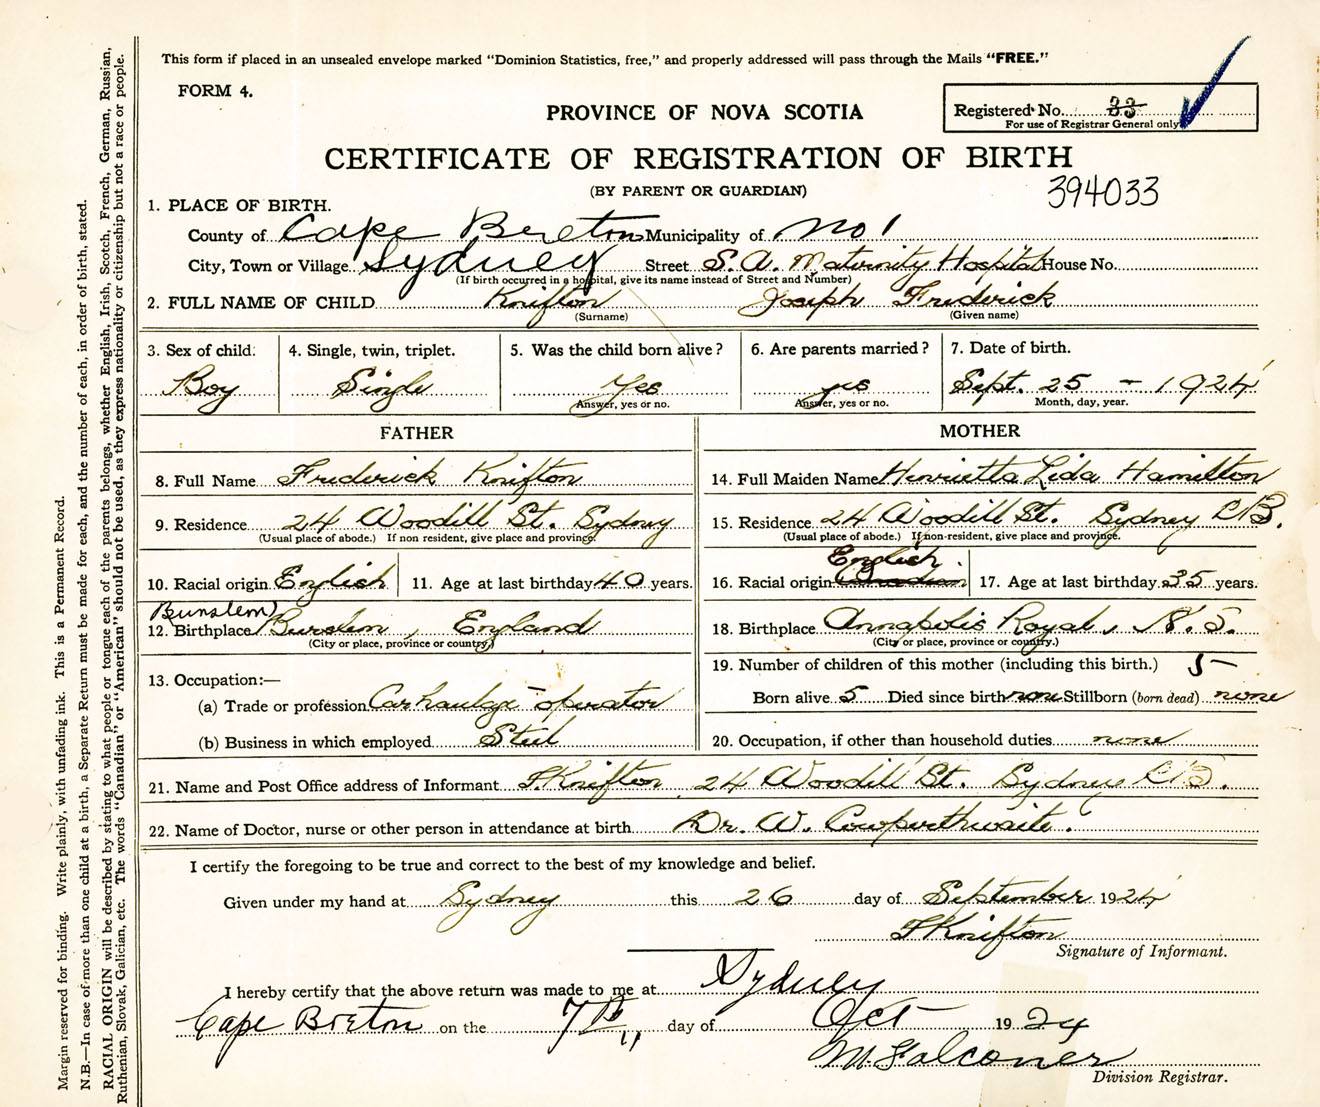 This form if placed in an unsealed envelope marked "Dominion Statistics, free," and properly addressed will pass through the Mails "FREE."
FORM 4.
PROVINCE OF NOVA SCOTIA
Registered No. 33
For use of Registrar General only
CERTIFICATE OF REGISTRATION OF BIRTH
(BY PARENT OR GUARDIAN)
394033
1. PLACE OF BIRTH.
County of Cape Breton Municipality of No 1
City, Town or Village Sydney Street S. A. Maternity Hospital House No.
(If birth occurred in a hospital, give its name instead of Street and Number)
2. FULL NAME OF CHILD Knifton Joseph Frederick
(Surname) (Given name)
3. Sex of child. 4. Single, twin, triplet. 5. Was the child born alive? 6. Are parents married? 7. Date of birth.
Boy Single Yes yes Sept. 25 - 1924
Answer, yes or no. Answer, yes or no. Month, day, year.
FATHER
8. Full Name Frederick Knifton
9. Residence 24 Woodill St. Sydney
(Usual place of abode.) If non resident, give place and province.
10. Racial origin English 11. Age at last birthday 40 years.
Bunslem)
12. Birthplace Burslem, England
(City or place, province or country.)
13. Occupation:—
(a) Trade or profession Car haulage - operator
(b) Business in which employed Steel
MOTHER
14. Full Maiden Name Henrietta Lida Hamilton
15. Residence 24 Woodill St. Sydney C.B.
(Usual place of abode.) If non-resident, give place and province.
English.
16. Racial origin Canadian 17. Age at last birthday 35 years.
18. Birthplace Annapolis Royal, N.S.
(City or place, province or country.)
19. Number of children of this mother (including this birth.) 5-
Born alive 5 Died since birth none Stillborn (born dead) none
20. Occupation, if other than household duties none
21. Name and Post Office address of Informant F. Knifton 24 Woodill St. Sydney C.B.
22. Name of Doctor, nurse or other person in attendance at birth Dr. W. Cowperthwaite.
I certify the foregoing to be true and correct to the best of my knowledge and belief.
Given under my hand at Sydney this 26 day of September 1924
F Knifton
Signature of Informant.
I hereby certify that the above return was made to me at Sydney
Cape Breton on the 7th day of Oct 1924
M. Falconer
Division Registrar.
Margin reserved for binding. Write plainly, with unfading ink. This is a Permanent Record.
N.B.—In case of more than one child at a birth, a Separate Return must be made for each, and the number of each, in order of birth, stated.
RACIAL ORIGIN will be described by stating to what people or tongue each of the parents belongs, whether English, Irish, Scotch, French, German, Russian,
Ruthenian, Slovak, Galician, etc. The words "Canadian" or "American" should not be used, as they express nationality or citizenship but not a race or people.